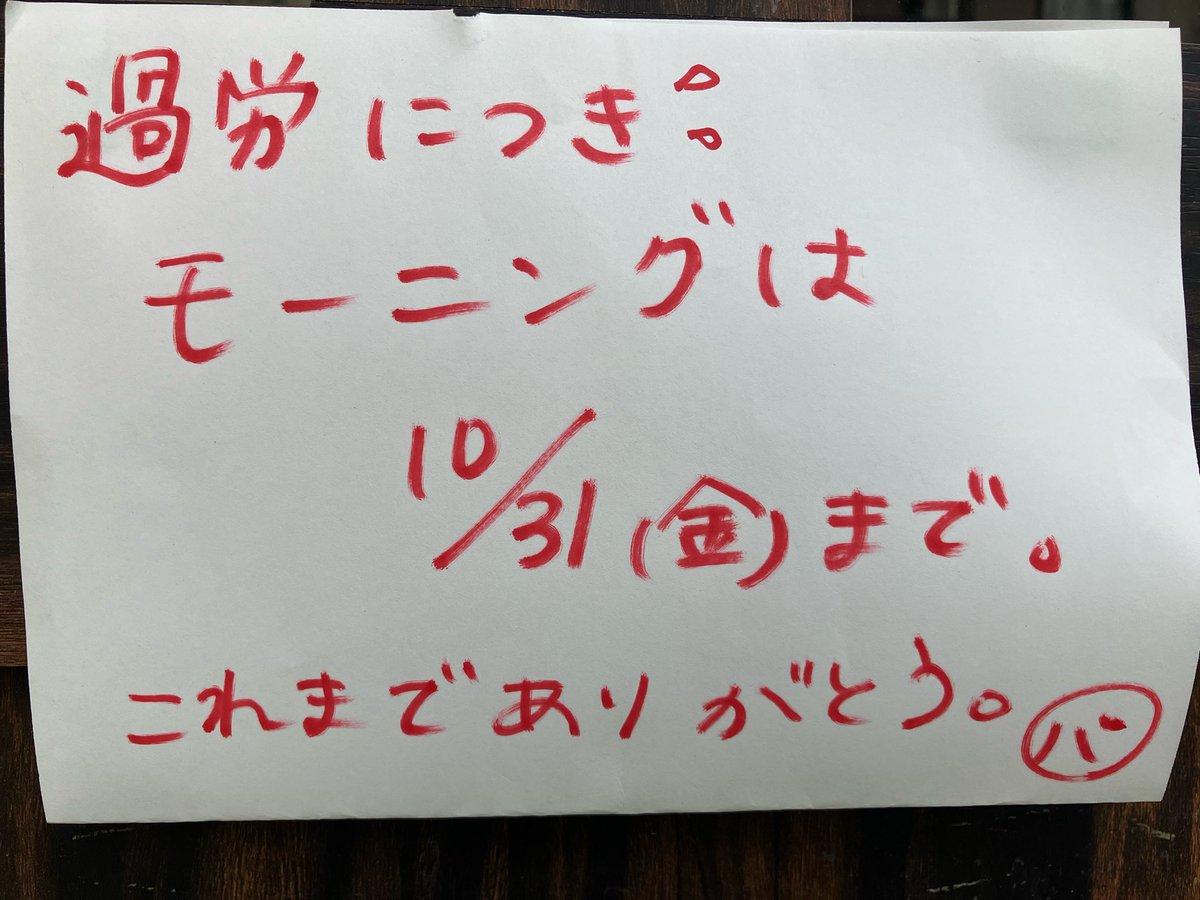 過労につき
モーニングは
10/31(金)まで。
これまでありがとう。